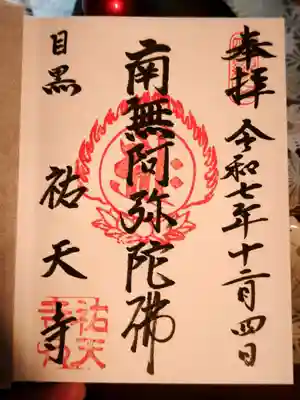 奉拝 令和七年十二月四日
南無阿弥陀佛
目黒 祐天寺
祐天
寺